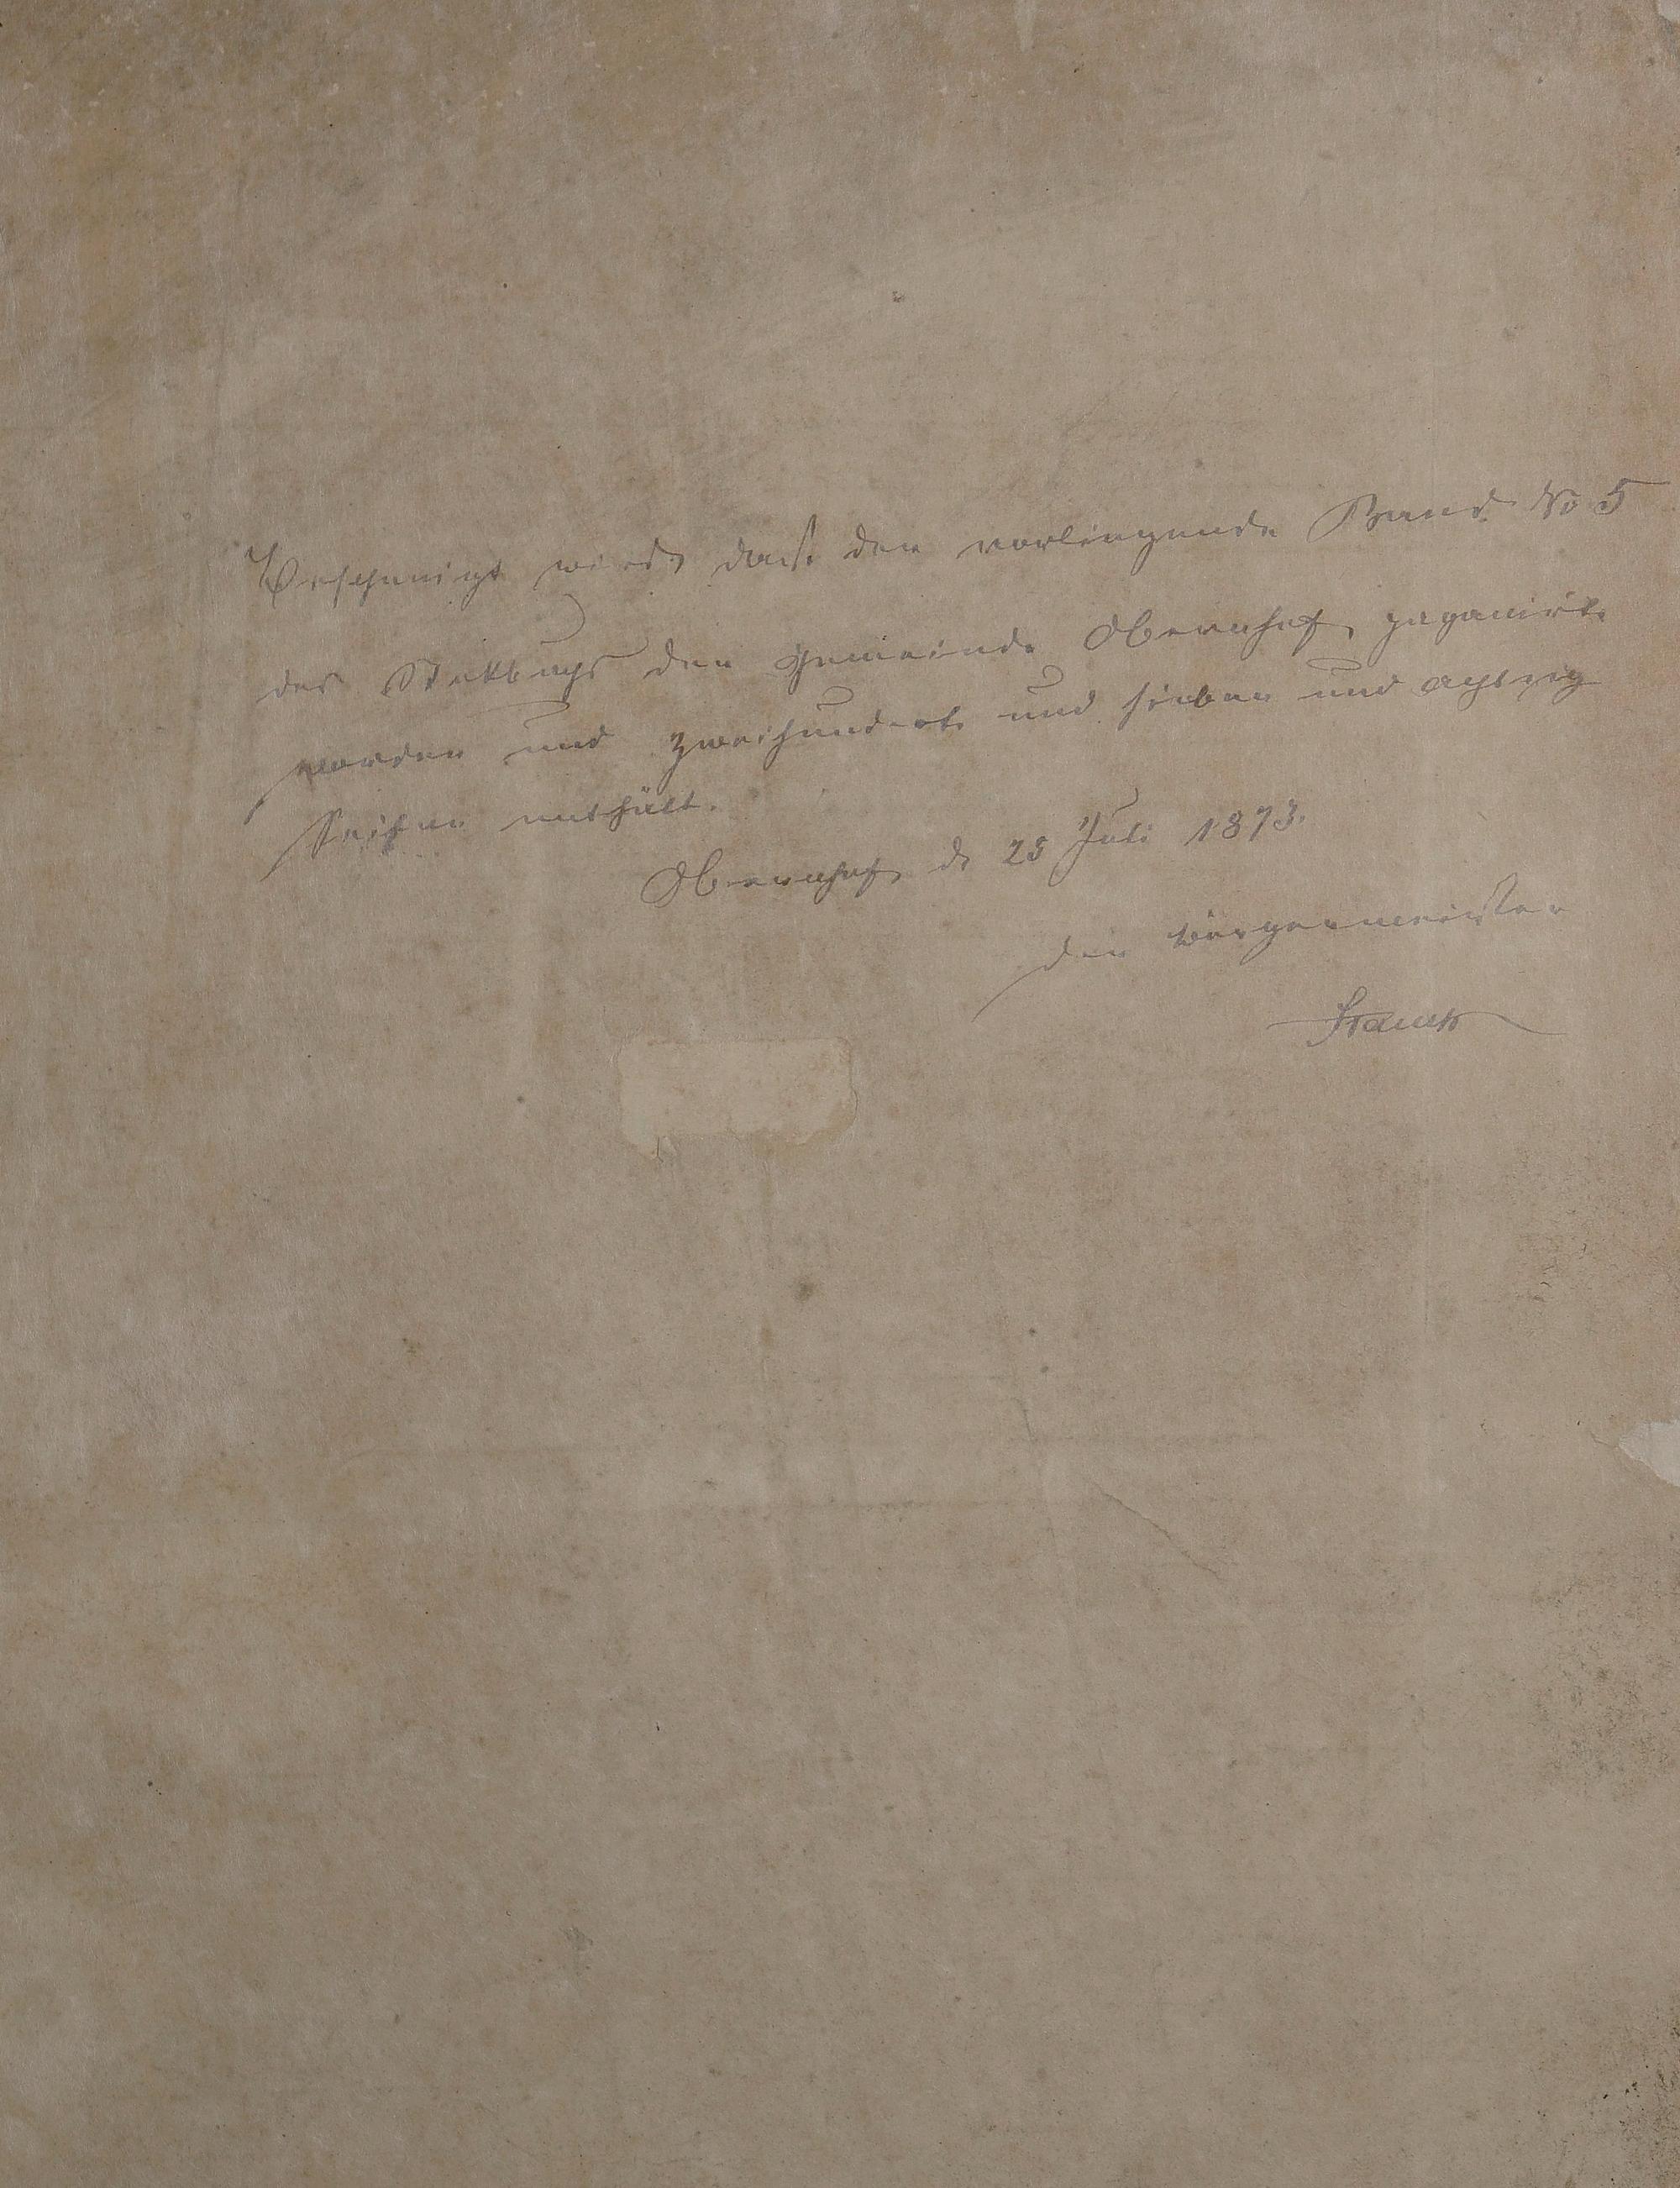 Bescheinigt wird, daß der vorliegende Band No 5
des Stockbuchs der Gemeinde Obernhof paganirt
worden und zweihundert und sieben und achtzig
Seiten enthält.
Obernhof d. 25 Juli 1873.
Der Bürgermeister